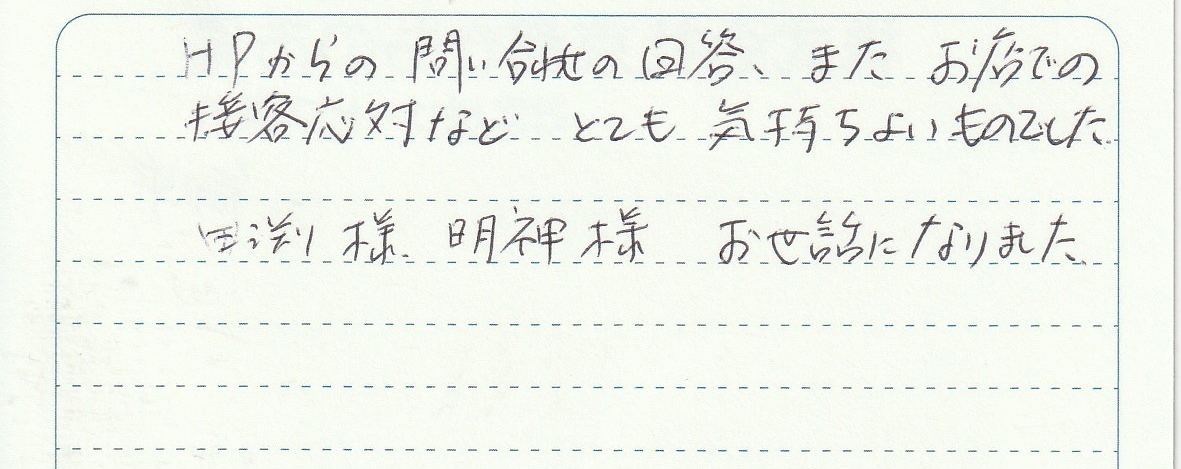 HPからの問い合わせの回答、また お店での
接客応対など とても 気持ちよいものでした.
様. 明神様 お世話になりました.